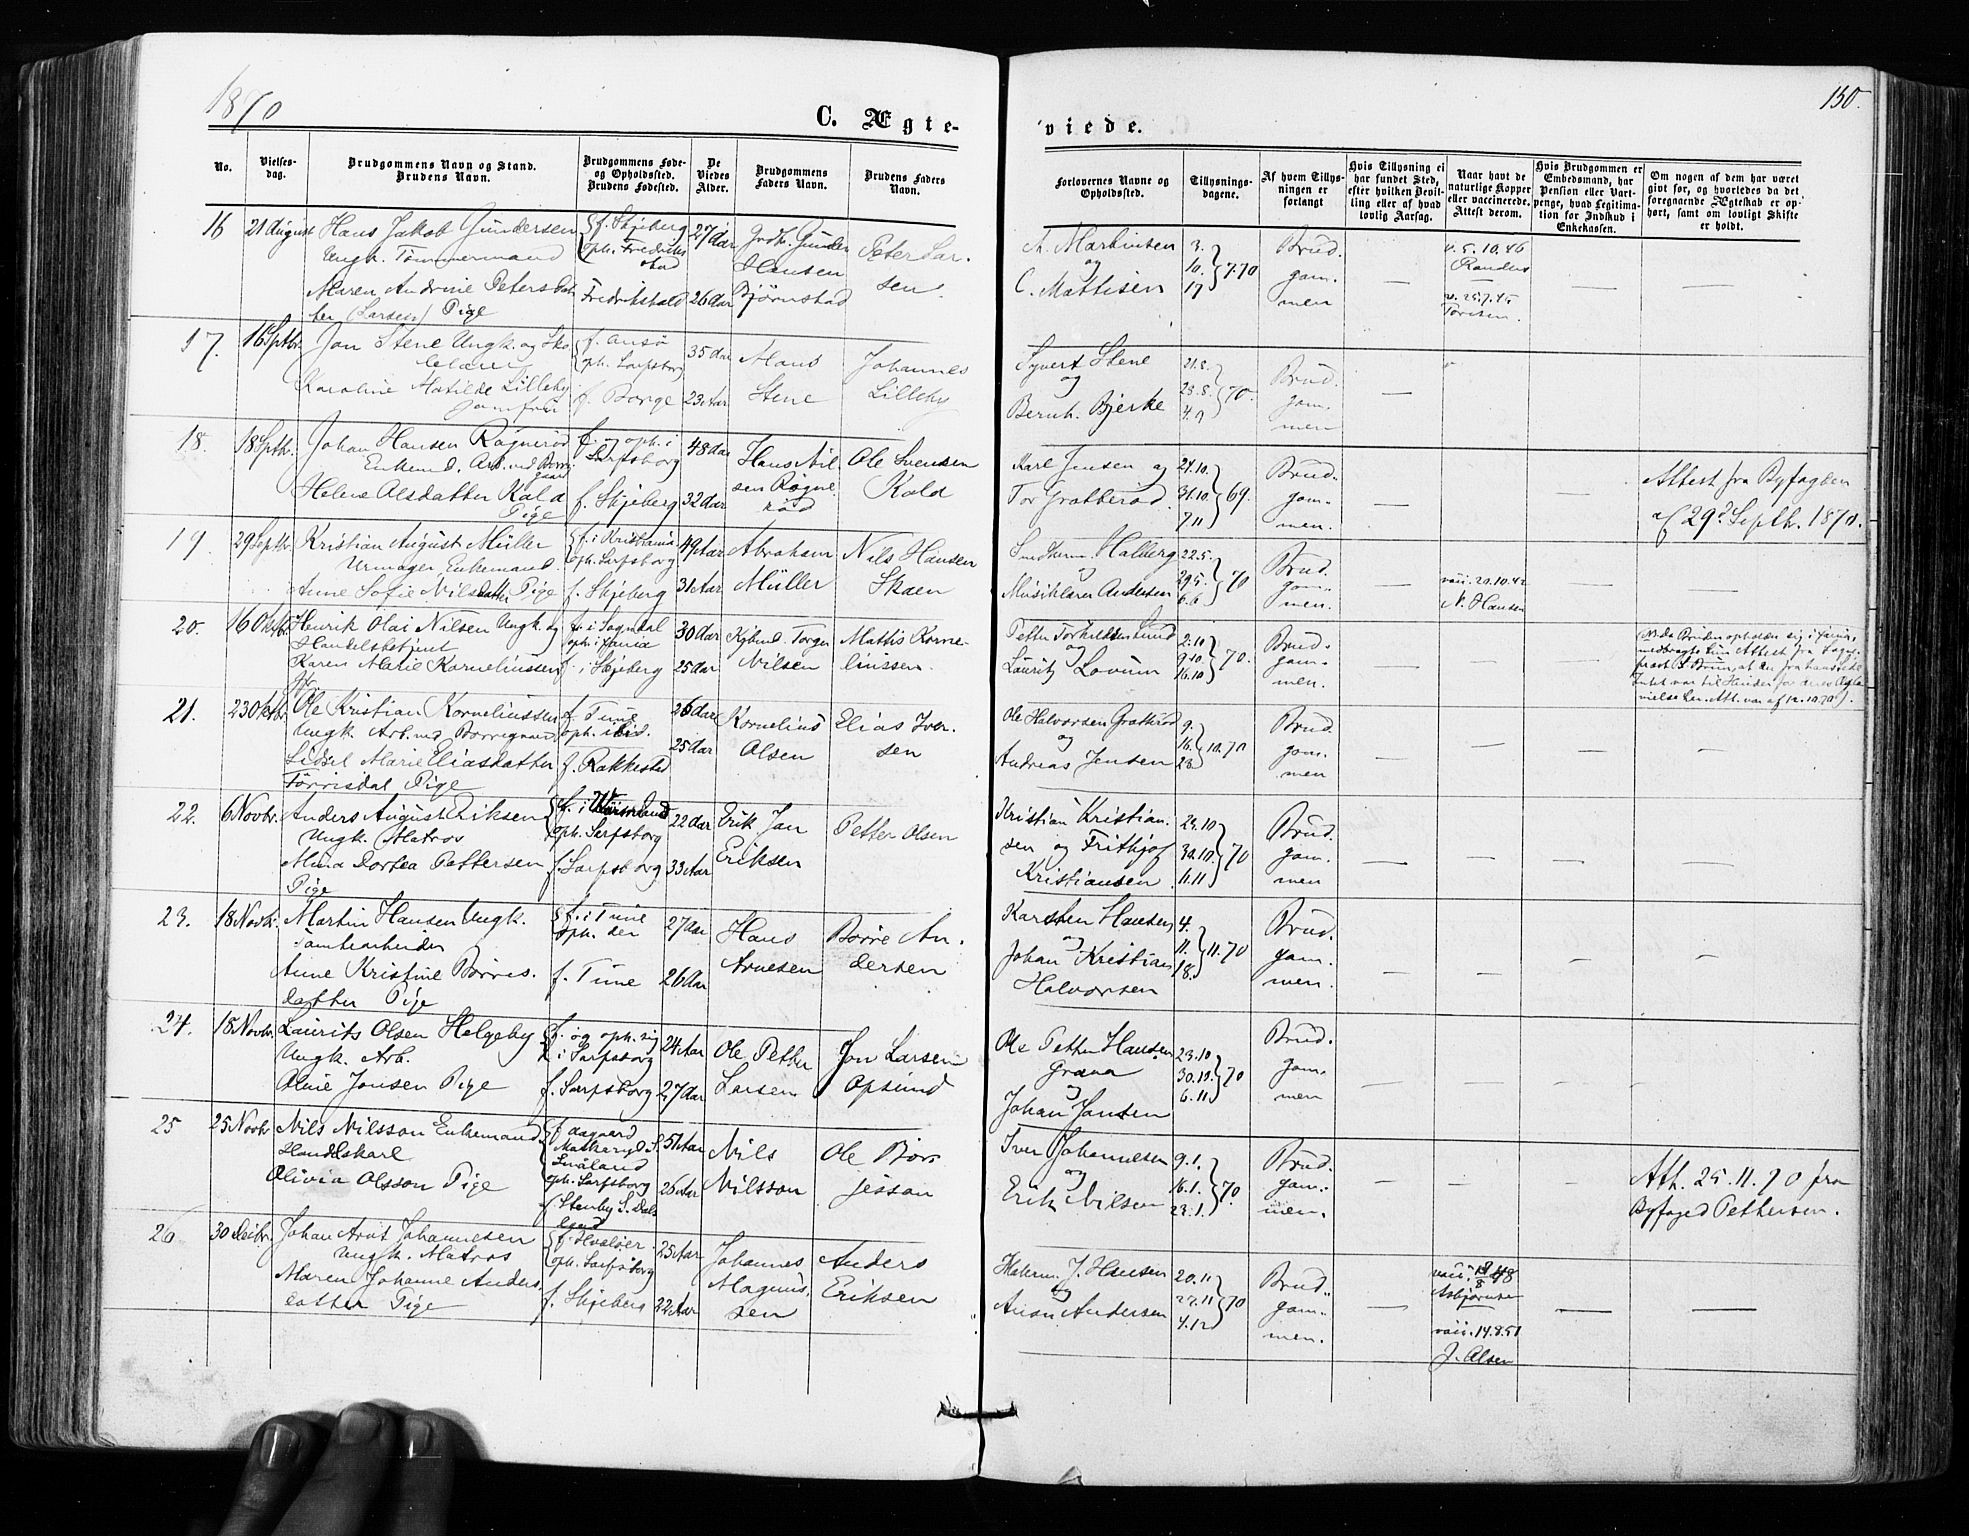 1870
150.
C. Ægte-
viede.
No.
Vielses-
dag.
Brudgommens Navn og Stand.
Brudens Navn.
Brudgommens Føde-
og Opholdssted.
Brudens Fødested.
De
Viedes
Alder.
Brudgommens
Faders Navn.
Brudens Faders
Navn.
Forlovernes Navne og
Opholdssted.
Tillysnings-
dagene.
Af hvem Tillys-
ningen er
forlangt
Hvis Tillysning ei
har fundet Sted,
efter hvilken Bevil-
ling eller af hvad
lovlig Aarsag.
Naar havt de
naturlige Kopper
eller vaccinerede.
Attest derom.
Hvis Brudgommen er
Embedsmand, har
Pension eller Vart-
penge, hvad Legitima-
tion for Indskud i
Enkekassen.
Om nogen af dem har været
givt før, og hvorledes da det
foregaaende Ægteskab er op-
hørt, samt om lovligt Skifte
er holdt.
16
21 August
Hans Jakob Gundersen
Ungk. Tømmermand
Maren Andrine Petersdat-
ter (Larsen) Pige
f. Skjeberg
oph. Fredrik-
stad
Fredrikshald
27 Aar
26 Aar
Grdb. Gunder
Hansen
Bjørnstad
Peter Lar-
sen.
A. Martinsen
og
C. Mattisen
3.
10.
17
7.70
Brud-
gom-
men
v. 5.10.46
v. 25.7.45
17.
16 Septbr.
Jon Stene Ungk. og Sko-
Karoline Matilde Lilleby
Jomfru
oph. Sarpsborg
f. Borge
35 Aar
23 Aar
Stene
Johannes
Lilleby
Syvert Stene
og
Bernh. Bjerke
21.8.
28.8.
4.9
70.
Brud-
gom-
men
18.
18 Septbr.
Johan Hansen Rognerød
Enkemd. Arb. ved Borre-
gaard
Helene Olsdatter Kold
Pige
f. og oph. i
Sarpsborg
f. Skjeberg
48 Aar
32 Aar
Hans Nil-
sen Rogne-
rød
Ole Svensen
Kold
Karl Jensen og
Tor Grotterød.
24.10.
31.10.
7.11
69.
Brud-
gom-
men.
Attest fra Byfogden
af 29d Septbr. 1870.
19.
29 Septbr.
Kristian August Müller
Urmager, Enkemand
Anne Sofie Nilsdatter Pige
f. i Kristiania
oph. Sarpsborg
f. Skjeberg
49 Aar
31 Aar
Abraham
Müller
Nils Hansen
Skaen
Halberg
og
Musiklærer Andersen
22.5.
29.5.
6.6.
70
Brud-
gom-
men.
vaci. 20.10.42
N. Hansen
20.
16 Oktbr.
Henrik Olai Nilsen Ungk. og
Handelsbetjent
Karen Marie Korneliussen
f. i Sogndal
f. i Skjeberg
30 Aar
25 Aar
Kjøbmd. Torger
Nilsen
Mattis Korne-
liussen.
Petter Torkildsen Lund
og
Lauritz Lovum
2.10
9.10.
16.10
70.
Brud-
gom-
men.
21.
23 Oktbr.
Ole Kristian Korneliussen
Ungk. Arb. ved Borregaard
Lidsel Marie Eliasdatter
Torrisdal Pige
f. Tune
oph. ibid.
f. Rakkestad
26 Aar
25 Aar
Kornelius
Olsen
Elias Iver-
sen
Ole Halvorsen Grotterød
og
Andreas Jensen
9.
16.
23.
10.70
Brud-
gom-
men
22.
6 Novbr.
Anders August Eriksen
Ungk. Matros
Mina Dortea Pettersen
Pige
f. i Wärmland
oph. Sarpsborg
f. Sarpsborg
22 Aar
33 Aar
Erik Jan
Eriksen
Petter Olsen
Kristian Kristian-
sen og Frithjof
Kristiansen
23.10
30.10.
6.11
70
Brud-
gom-
men
23.
18 Novbr.
Martin Hansen Ungk.
Tomtearbeider
Anne Kristine Børres-
datter Pige
f. i Tune
oph. der
f. Tune
27 Aar
26 Aar
Hans
Arnesen
Børre An-
dersen
Karsten Hansen
og
Johan Kristian
Halvorsen
4.
11.
18.
11.70
Brud-
gom-
men.
24.
18 Novbr.
Laurits Olsen Helgeby
Ungk. Arb.
Oline Jonsen Pige
f. og oph. sig
i Sarpsborg
f. Sarpsborg
24 Aar
27 Aar
Ole Petter
Larsen
Jon Larsen
Opsund
Ole Petter Hansen
Græna
og
Johan Jonsen
23.10
30.10.
6.11
70
Brud-
gom-
men
25
25 Novbr
Nils Nilsson Enkemand
Handelskarl
Olivia Olsson Pige
Småland
oph. Sarpsborg
51 Aar
26 Aar
Nils
Nilsson
Ole Bør-
jesson
Iver Johannesen
og
Erik Nilsen
9.1.
16.1.
23.1.
70
Brud-
gom-
men.
Att. 25.11.70 fra
Byfoged Pettersen.
26
30 Decbr.
Johan Arnt Johannesen
Ungk. Matros
Maren Johanne Anders-
datter Pige
f. Hvaløer.
oph. Sarpsborg
f. Skjeberg
25 Aar
22 Aar
Johannes
Magnus-
sen
Anders
Eriksen
J. Hansen
og
Anton Andersen
20.11
27.11
4.12
70
Brud-
gom-
men.
Asbjørnsen
vaci. 14.8.51
J. Olsen